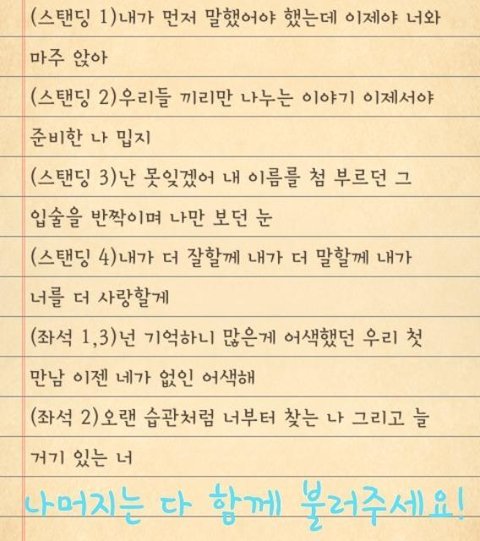 (스탠딩 1)내가 먼저 말했어야 했는데 이제야 너와
마주 앉아
(스탠딩 2)우리들 끼리만 나누는 이야기 이제서야
준비한 나 밉지
(스탠딩 3)난 못잊겠어 내 이름를 첨 부르던 그
입술을 반짝이며 나만 보던 눈
(스탠딩 4)내가 더 잘할께 내가 더 말할께 내가
너를 더 사랑할게
(좌석 1,3)넌 기억하니 많은게 어색했던 우리 첫
만남 이젠 네가 없인 어색해
(좌석 2)오랜 습관처럼 너부터 찾는 나 그리고 늘
거기 있는 너
나머지는 다 함께 불러주세요!